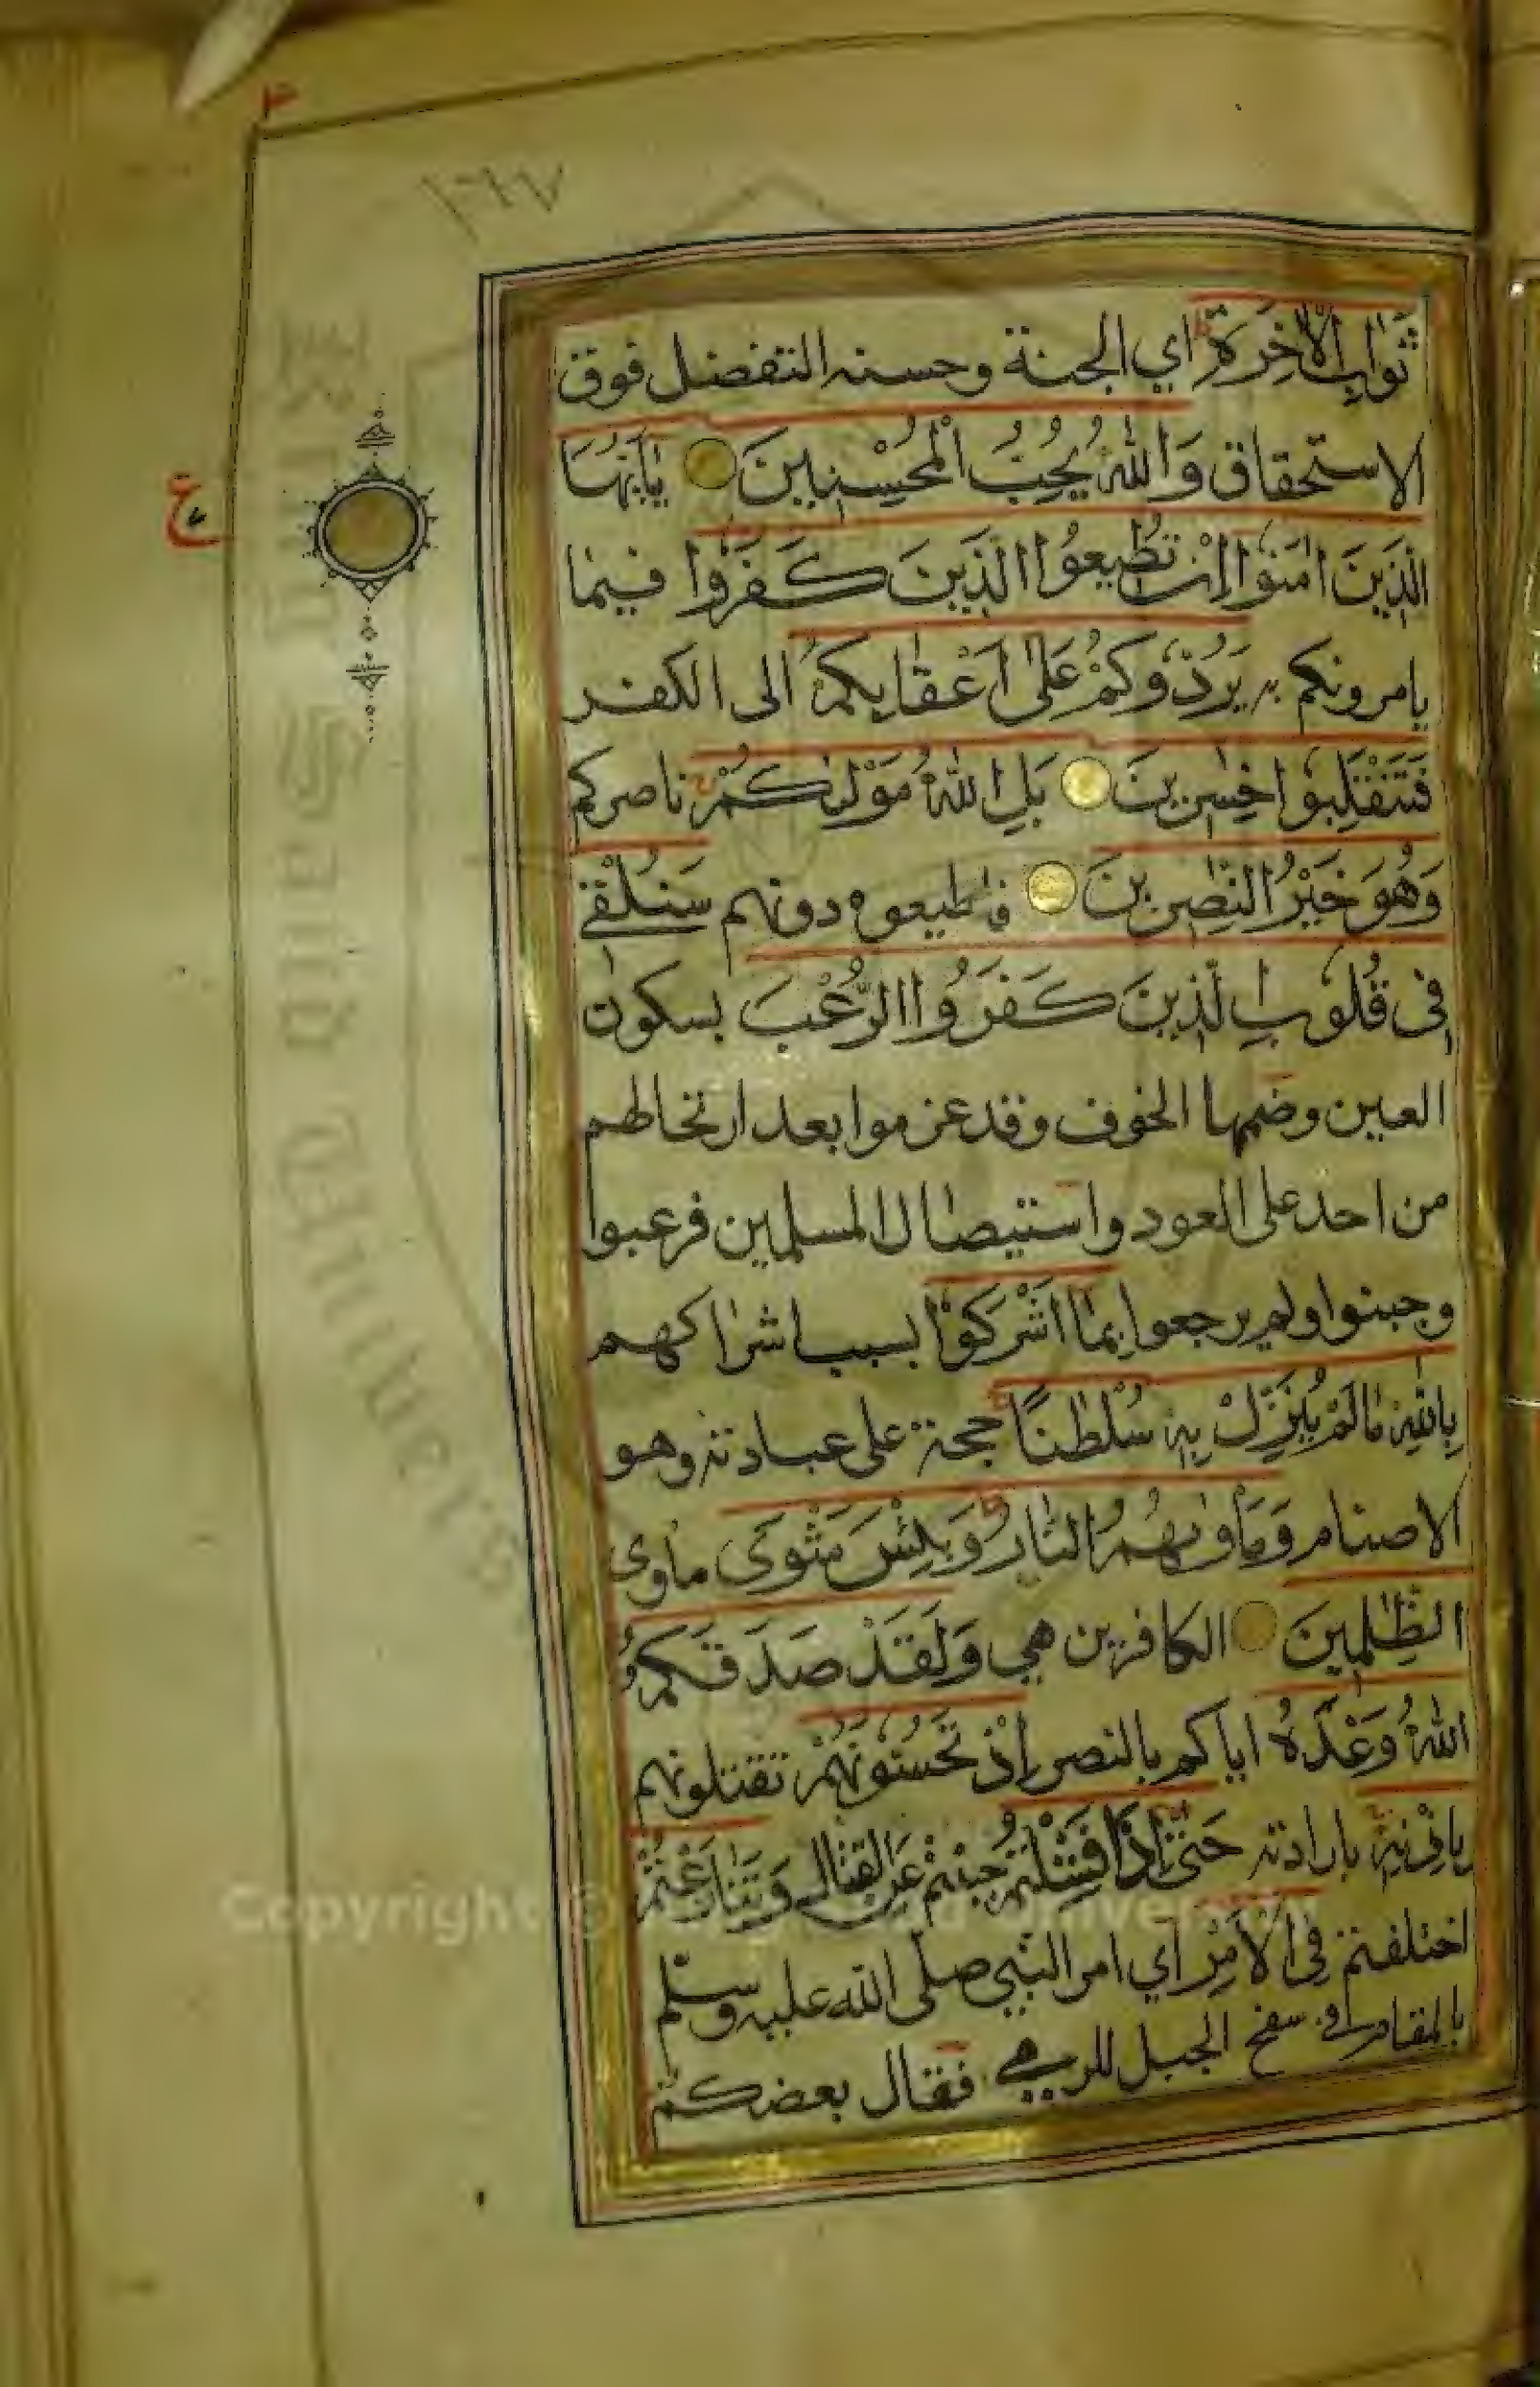 ٣
١٦٧
ثَوَابِ الْاٰخِرَةِ ط اي الجنة وحسنه التفضل فوق
الاستحقاق وَاللّٰهُ يُحِبُّ الْمُحْسِنِينَ يٰٓاَيُّهَا
ع
الَّذِينَ اٰمَنُوٓا اِنْ تُطِيعُوا الَّذِينَ كَفَرُوا فيما
يامرونكم به يَرُدُّوكُمْ عَلٰٓى اَعْقَابِكُمْ الى الكفر
فَتَنْقَلِبُوا خٰسِرِينَ بَلِ اللّٰهُ مَوْلٰىكُمْ ج ناصركم
وَهُوَ خَيْرُ النّٰصِرِينَ فاطيعوه دونهم سَنُلْقِي
فِي قُلُوبِ الَّذِينَ كَفَرُوا الرُّعْبَ بسكون
العين وضمها الخوف وقد عزموا بعد ارتحالهم
من احد على العود واستيصال المسلمين فرعبوا
وجبنوا ولم يرجعوا بِمَٓا اَشْرَكُوا بسبب اشراكهم
بِاللّٰهِ مَا لَمْ يُنَزِّلْ بِهٖ سُلْطٰنًا ج حجة على عبادته وهو
الاصنام وَمَاْوٰىهُمُ النَّارُ ط وَبِئْسَ مَثْوَى ماوى
الظّٰلِمِينَ الكافرين هي وَلَقَدْ صَدَقَكُمُ
اللّٰهُ وَعْدَهٗٓ اياكم بالنصر اِذْ تَحُسُّونَهُمْ تقتلونهم
بِاِذْنِهٖ ج بارادته حَتّٰٓى اِذَا فَشِلْتُمْ جبنتم عن القتال وَتَنَازَعْتُمْ
اختلفتم فِي الْاَمْرِ اي امر النبي صلّى الله عليه وسلّم
بالمقام في سفح الجبل للرمي فقال بعضكم
King Saud University
Copyright © King Saud University